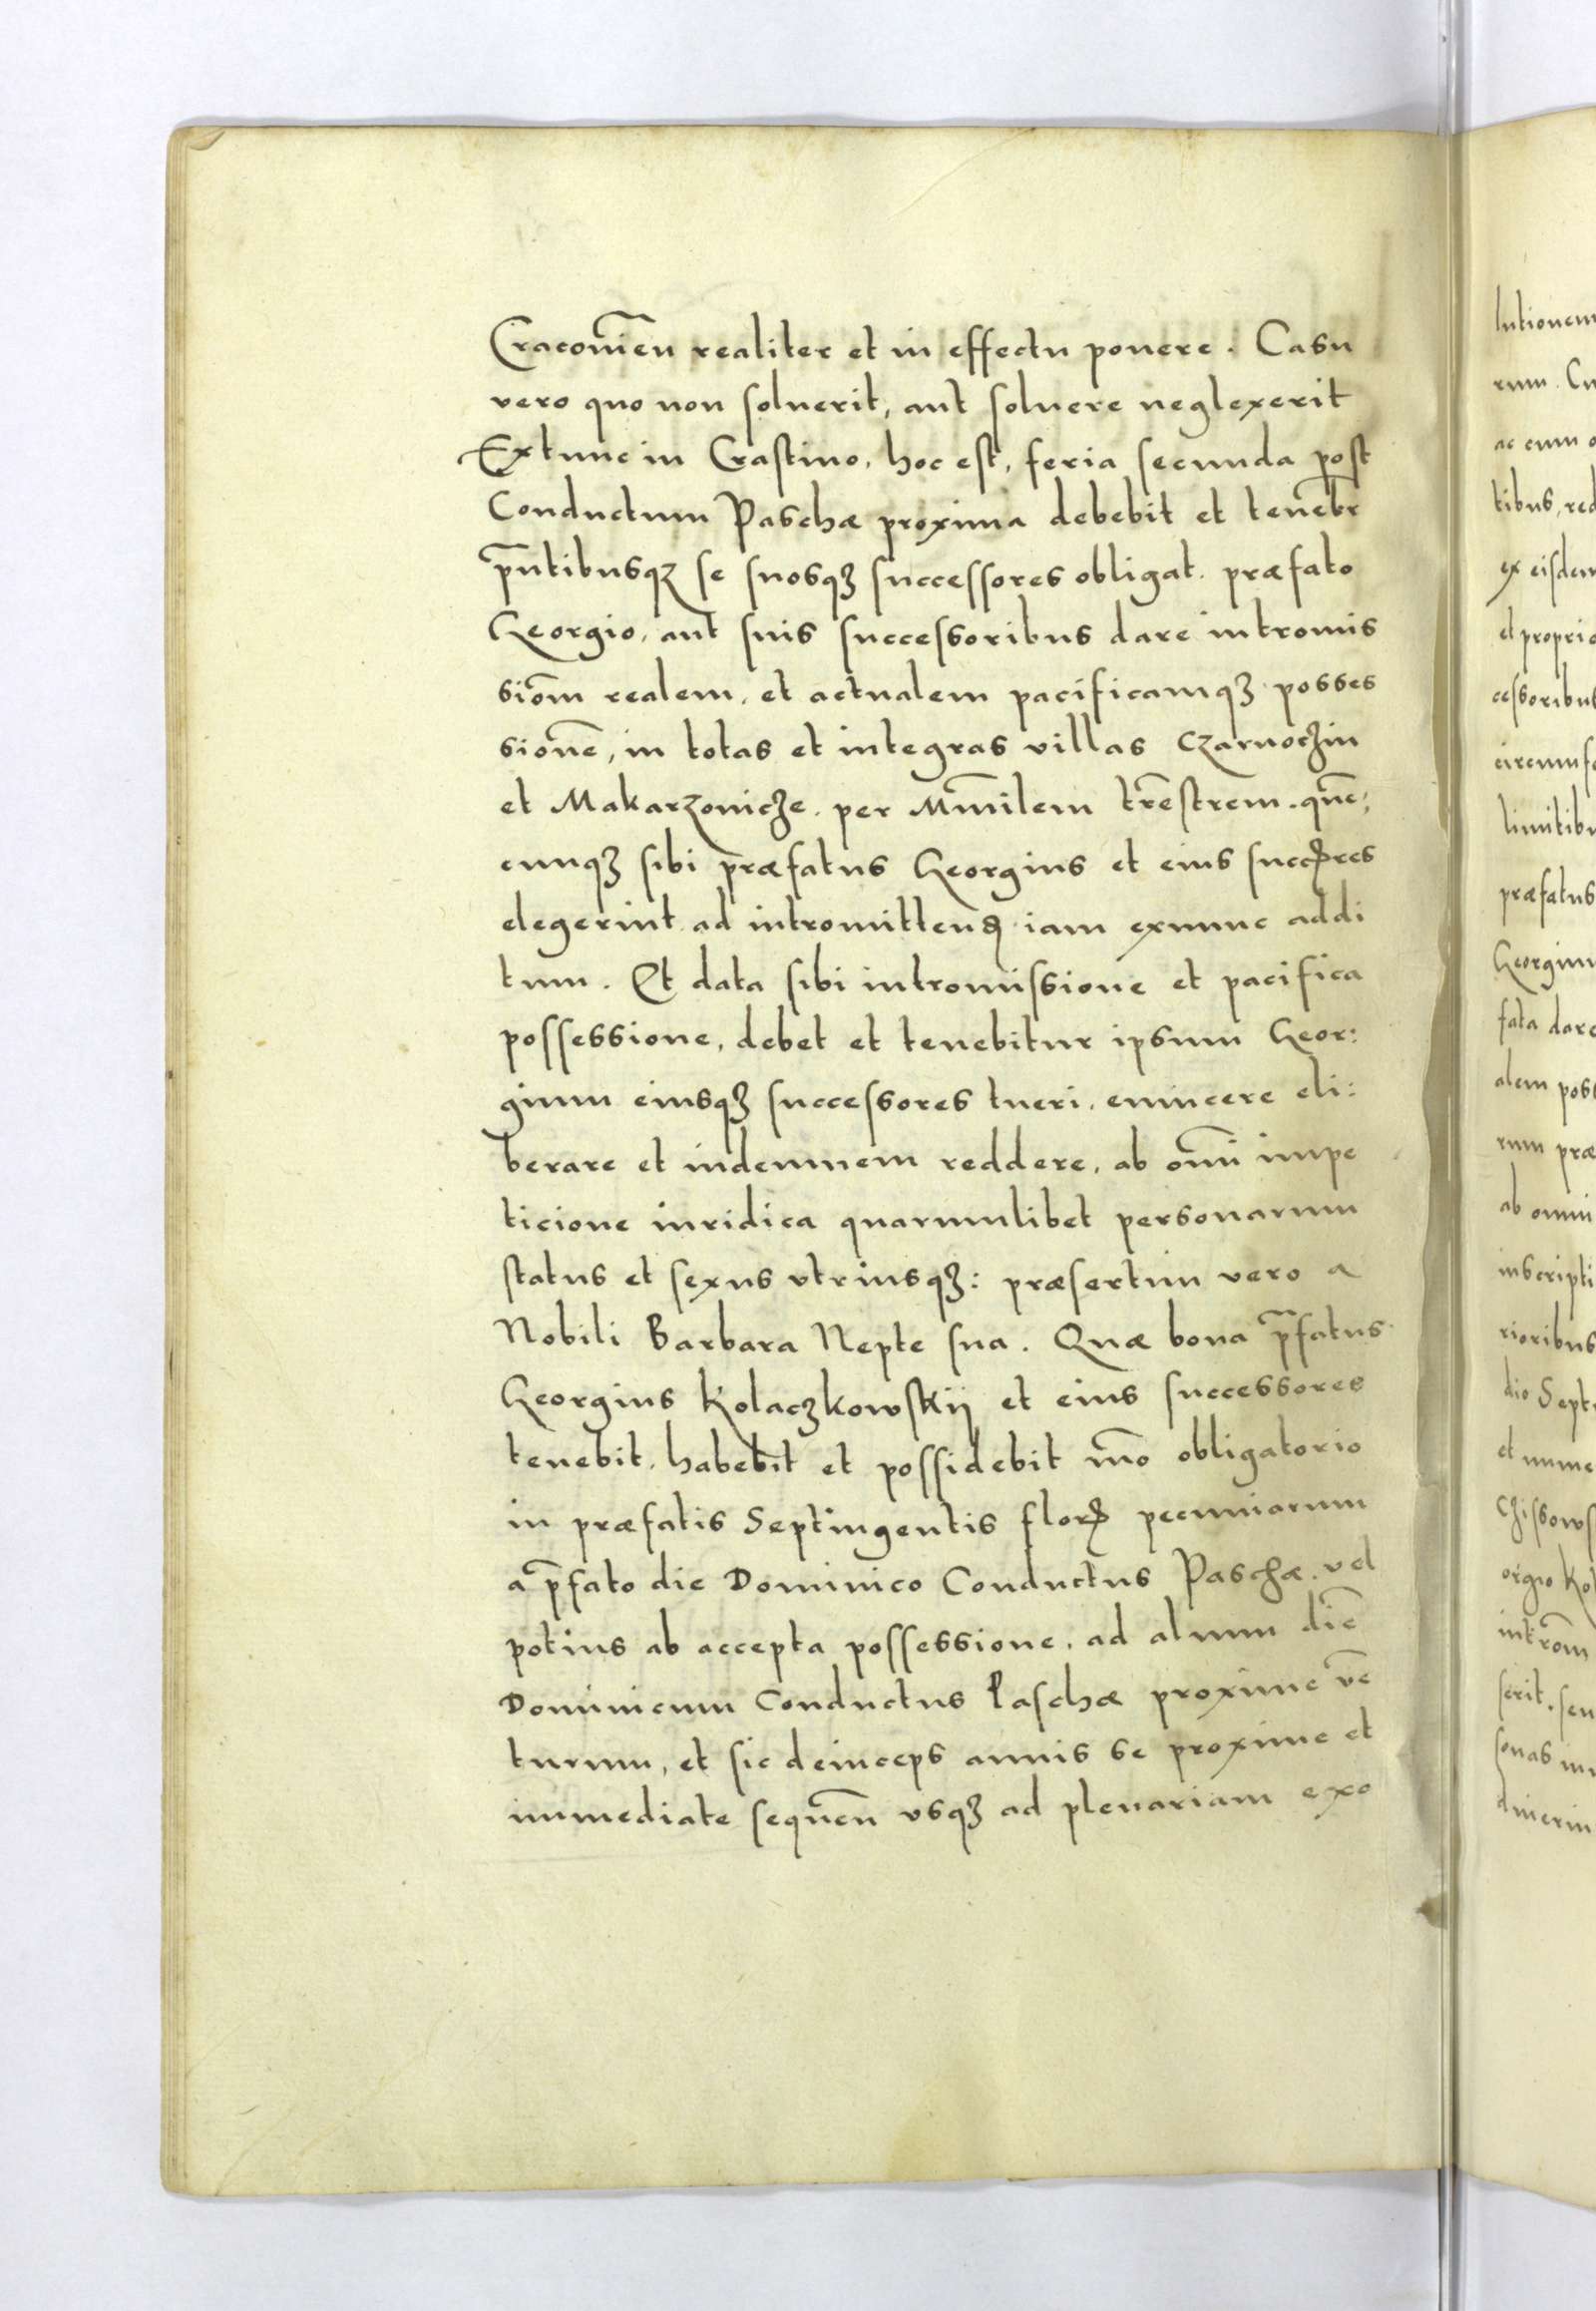 Cracovien̄ realiter et in effectu ponere. Casu
vero quo non soluerit, aut soluere neglexerit
Extunc in Crastino, hoc est, feria secunda post
Conductum Paschæ proxima debebit et teneb̄r
p̄ntibusqꝫ se suosqꝫ successores obligat. præfato
Georgio, aut suis successoribus dare intromis
siom̄ realem, et actualem pacificamqꝫ posses
sionē, in totas et integras villas Czarnoczin
et Makarzouicze. per Mm̄ilem tr̄estrem. quē:
cunqꝫ sibi præfatus Georgius et eius succꝭres
elegerint ad intromittenꝺ iam exnunc addi
tum. Et data sibi intromissione et pacifica
possessione, debet et tenebitur ipsum Geor:
gium eiusqꝫ successores tueri, euincere eli:
berare et indemnem reddere, ab om̄i impe
ticione iuridica quarumlibet personarum
status et sexus vtriusqꝫ: præsertim vero a
Nobili Barbara Nepte sua. Quæ bona p̄fatus
Georgius Kolaczkowskij et eius successores
tenebit, habebit et possidebit m̄o obligatorio
in præfatis Septingentis florꝭ pecuniarum
a p̄fato die Dominico Conductus Paschæ. vel
potius ab accepta possessione, ad alium diē
Dominicum Conductus Paschæ proxime vē
turum, et sic deinceps annis se proxime et
immediate sequen̄ vsqꝫ ad plenariam exo
lutionem
rum. Cu
ac cum o
tibus, red
ex eisdem
et proprie
cessoribus
circumf
limitibu
præfatus
Georgium
fata dare
alem poss
rum præ
ab omni
inscripti
rioribus
dio Septi
et nume
Czissows
orgio Kol
introm̄
serit. seu
sonas in
duerin